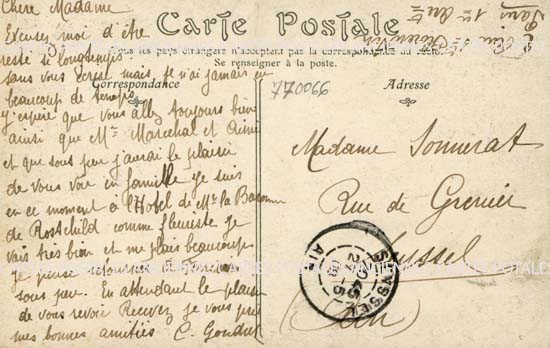 Carte Postale
Tous les pays étrangers n'acceptent pas la correspondance au recto.
Se renseigner à la poste.
Correspondance
Adresse
770066
Chere Madame
Excusez moi d'être
resté si longtemps
sans vous écrire mais je n'ai jamais eu
beaucoup de temps
j'espère que vous allez toujours bien
ainsi que Mr Marechal et Aimé
et que sous peu j'aurai le plaisir
de vous voir en famille je suis
en ce moment à l'Hotel de Me la Baronne
de Rostchild comme fleuriste je
vais très bien et me plais beaucoup
je pense retourner
sous peu. En attendant le plaisir
de vous revoir Recevez je vous prie
mes bonnes amitiés
Madame Sonnerat
Rue de Grenier
Seyssel
(Ain)
SEYSSEL
AIN